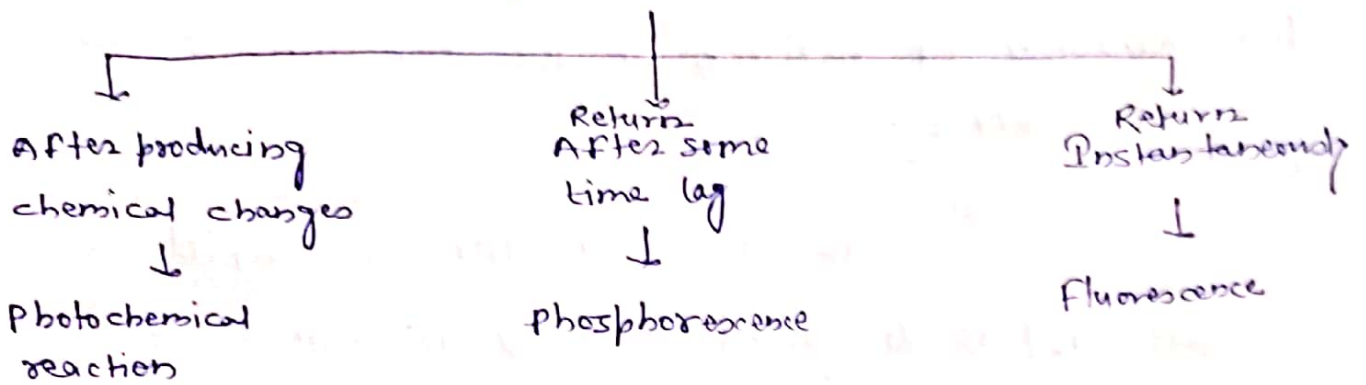 After producing
chemical changes
Photochemical
reaction
Return
After some
time lag
Phosphorescence
Return
Instantaneously
Fluorescence